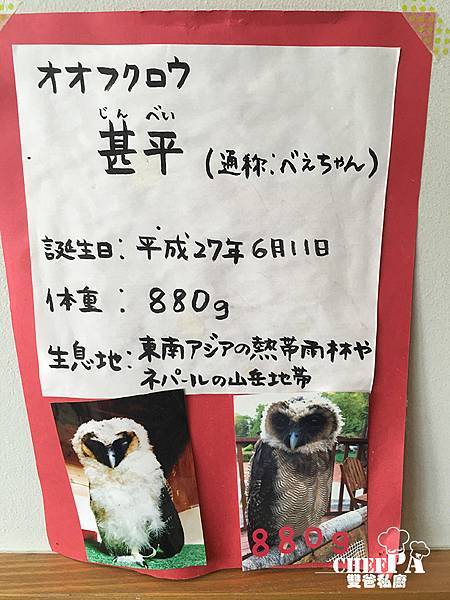 オオフクロウ
じん べい
甚平 (通称:べえちゃん)
誕生日: 平成27年6月11日
体重 : 880g
生息地: 東南アジアの熱帯雨林や
ネパールの山岳地帯
880g
CHEFPA
雙爸私廚